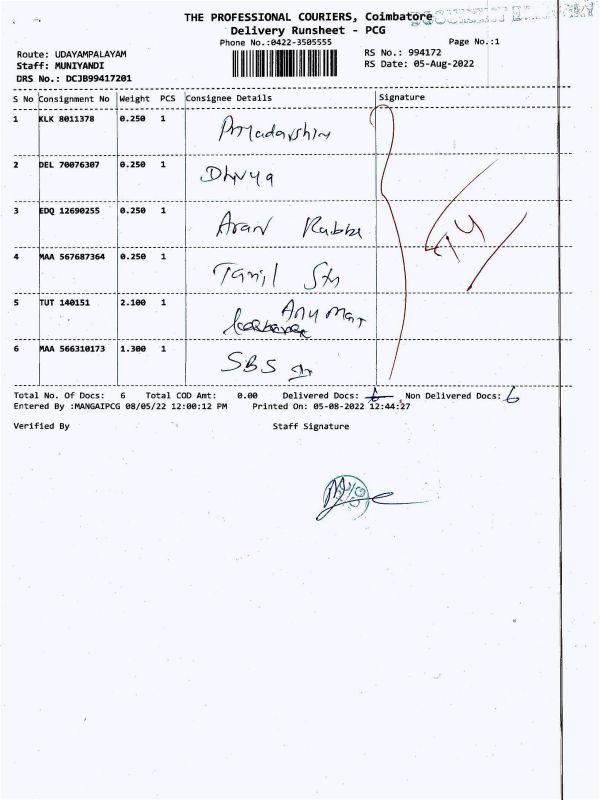 THE PROFESSIONAL COURIERS, Coimbatore
Delivery Runsheet - PCG
Phone No.:0422-3505555 Page No.:1
Route: UDAYAMPALAYAM RS No.: 994172
Staff: MUNIYANDI RS Date: 05-Aug-2022
DRS No.: DCJB99417201
S No Consignment No Weight PCS Consignee Details Signature
1 KLK 8011378 0.250 1
2 DEL 70076307 0.250 1 Dhivya
3 EDQ 12690255 0.250 1
4 MAA 567687364 0.250 1 Tamil
5 TUT 140151 2.100 1
6 MAA 566310173 1.300 1 SBS
Total No. Of Docs: 6 Total COD Amt: 0.00 Delivered Docs: Non Delivered Docs: 6
Entered By :MANGAIPCG 08/05/22 12:00:12 PM Printed On: 05-08-2022 12:44:27
Verified By Staff Signature